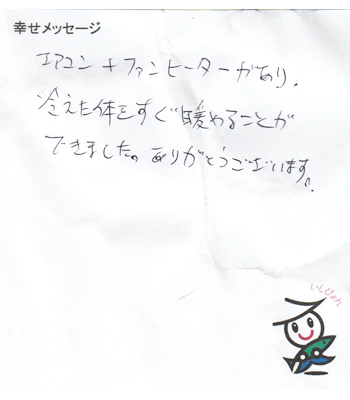 幸せメッセージ
エアコン+ファンヒーターがあり、
冷えた体をすぐ暖めることが
できました。ありがとうございます。
いしぴょん